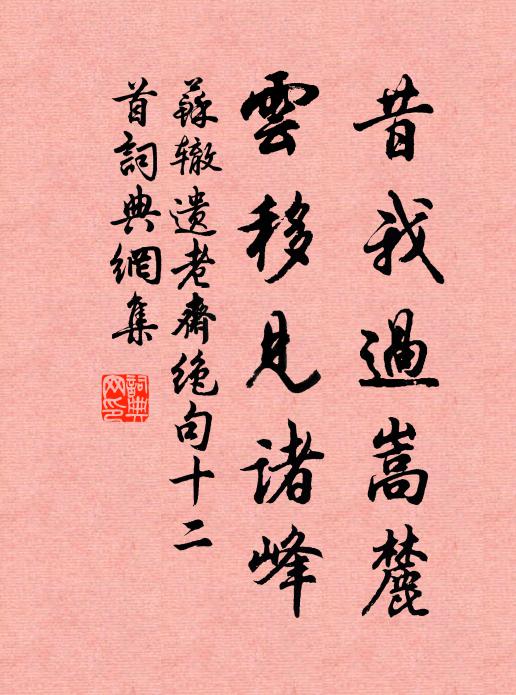 昔我過嵩麓
雲移見諸峰
蘇辙遗老齋绝句十二
首詞典網集
詞典网印